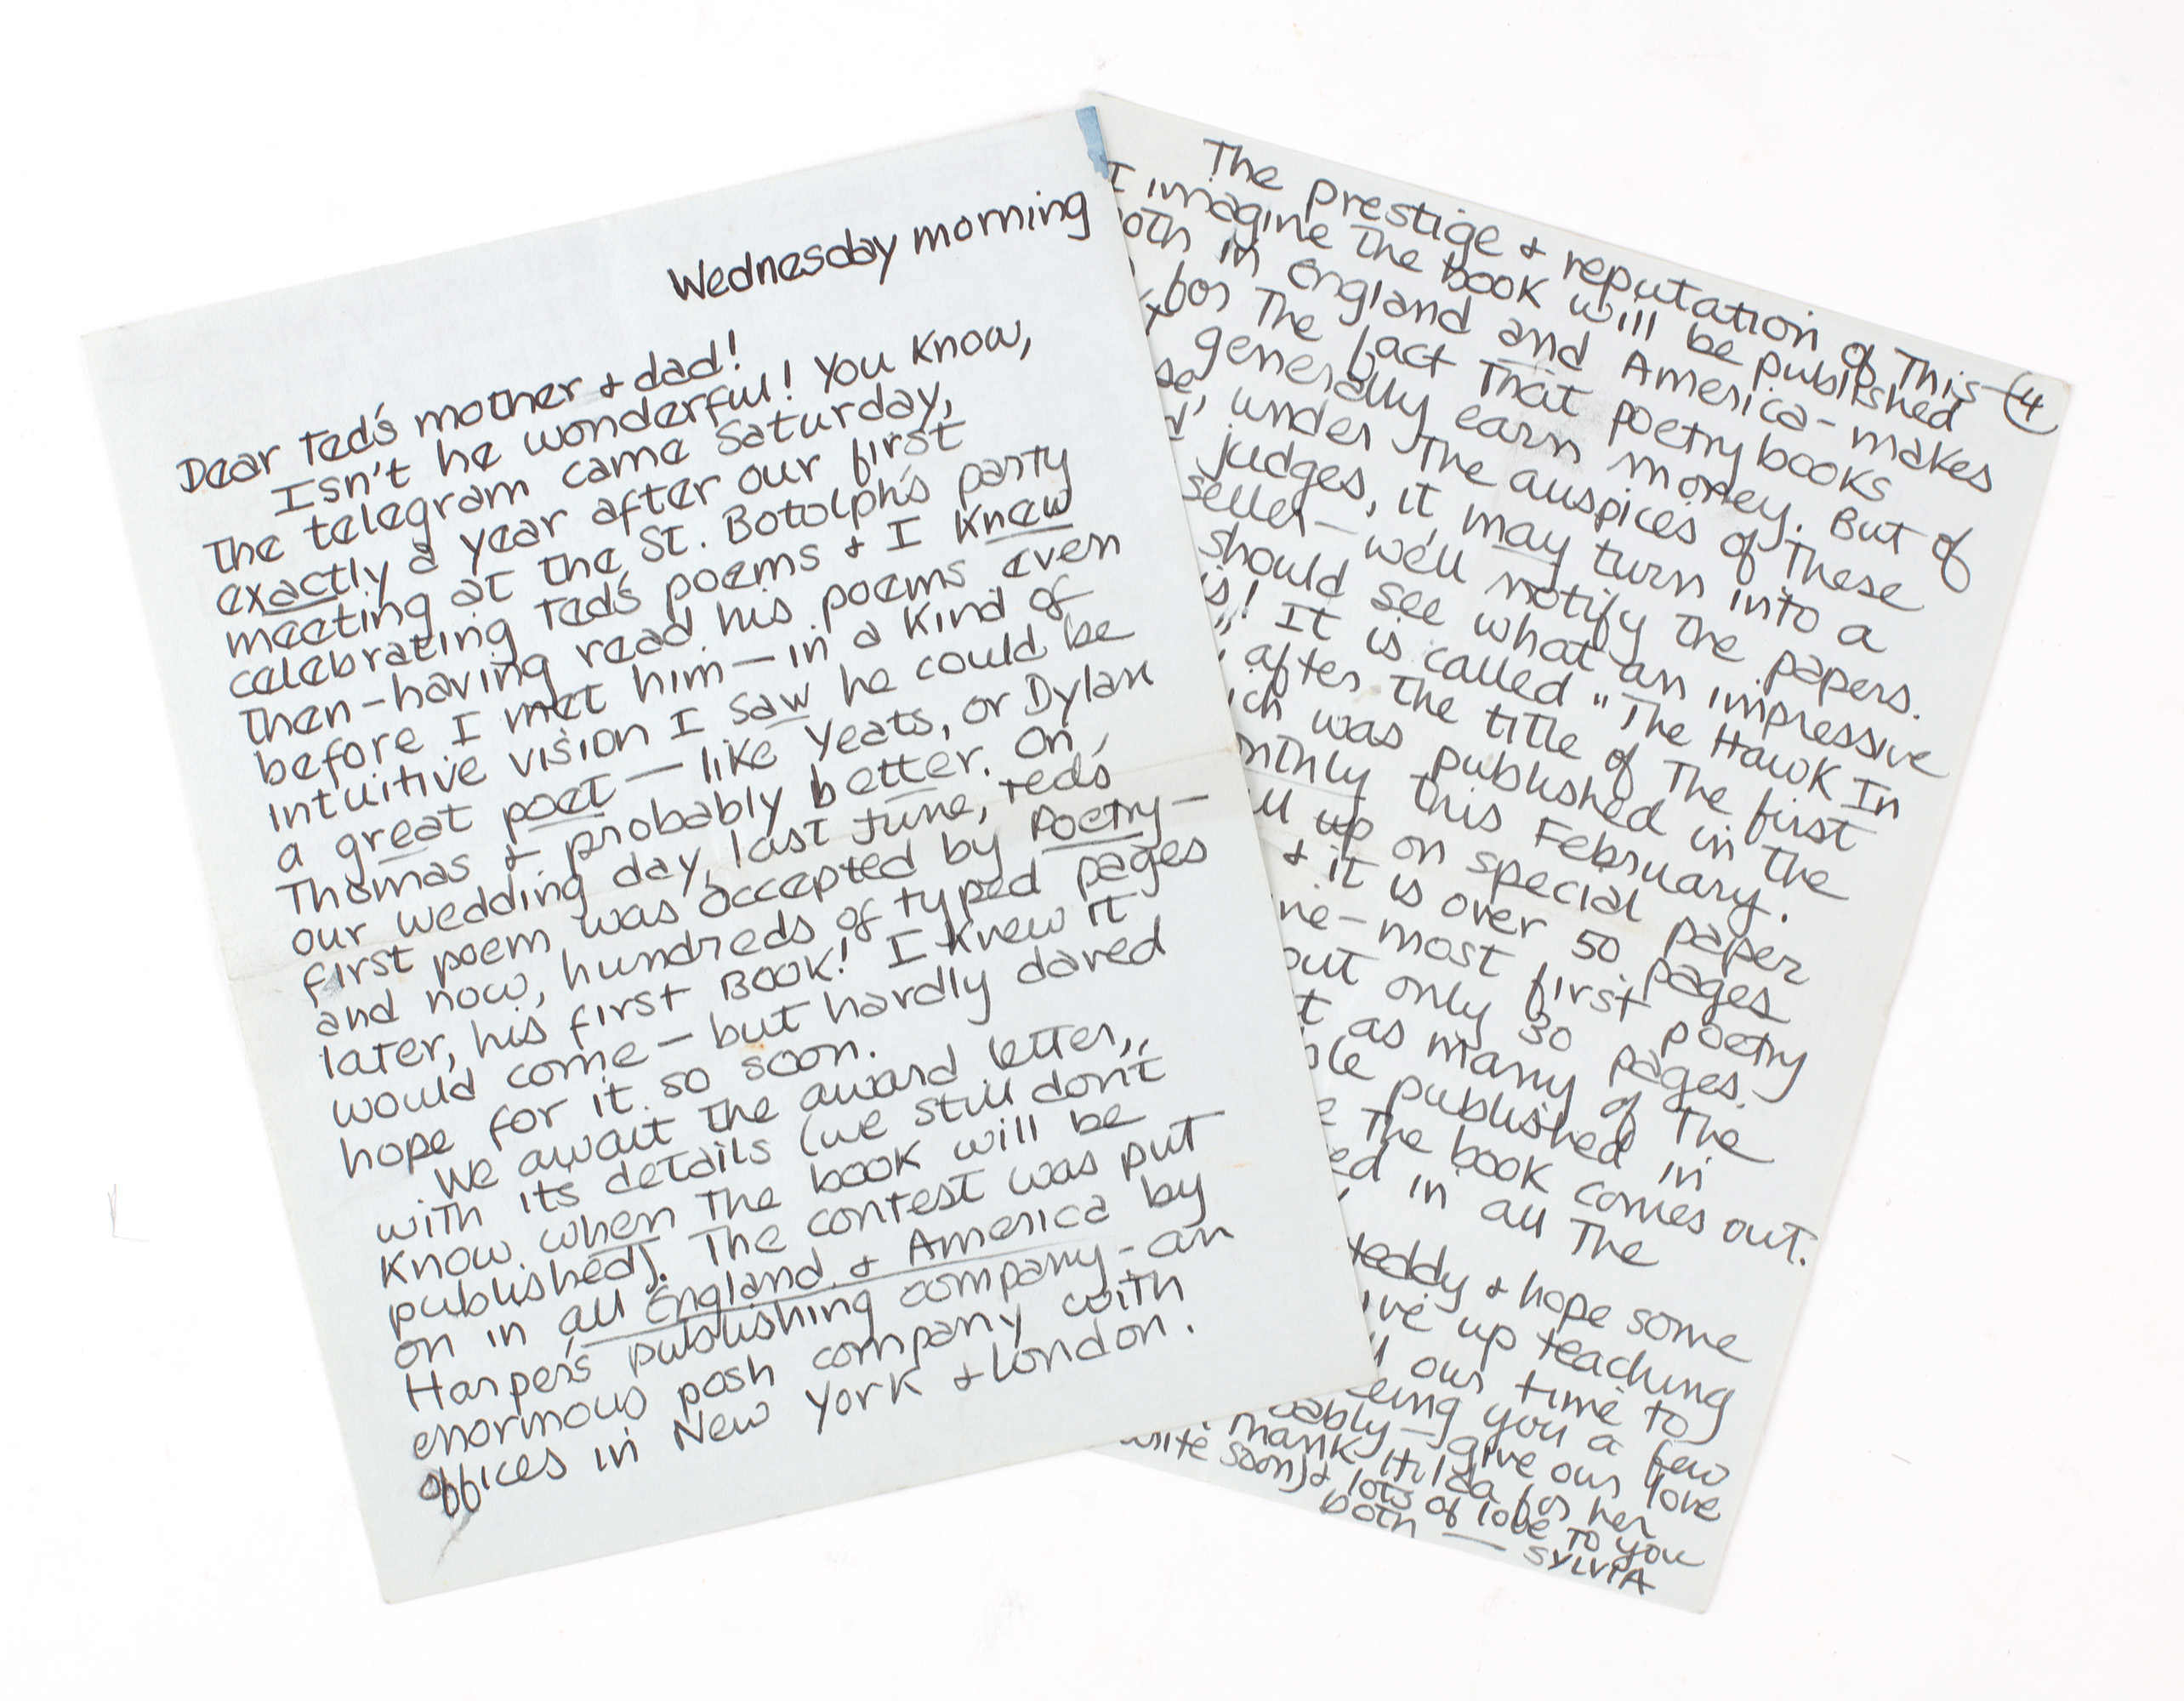 Wednesday morning
Dear Ted's mother & dad!
Isn't he wonderful! You know,
the telegram came Saturday,
exactly a year after our first
meeting at the St. Botolph's party
celebrating Ted's poems & I knew
then-having read his poems even
before I met him — in a kind of
intuitive vision I saw he could be
a great poet — like Yeats, or Dylan
Thomas & probably better. On
our wedding day, last June, Ted's
first poem was accepted by Poetry —
and now, hundreds of typed pages
later, his first BOOK! I knew it
would come — but hardly dared
hope for it so soon.
We await the award letter,
with its details (we still don't
know when the book will be
published). The contest was put
on in all England & America by
Harper's publishing company - an
enormous posh company with
offices in New York & London.
4
The prestige & reputation of this
I imagine the book will be published
in England and America - makes
for the fact that poetry books
generally earn money. But of
under the auspices of these
judges, it may turn into a
seller — we'll notify the papers.
should see what an impressive
! It is called "The Hawk In
after the title of the first
was published in the
this February.
up on special paper
& it is over 50 pages
- most first poetry
only 30 pages.
as many of the
published in
the book comes out.
in all the
teddy & hope some
up teaching
our time to
you a few
give our love
thank Hilda for her
soon) & lots of love to you
both — SYLVIA